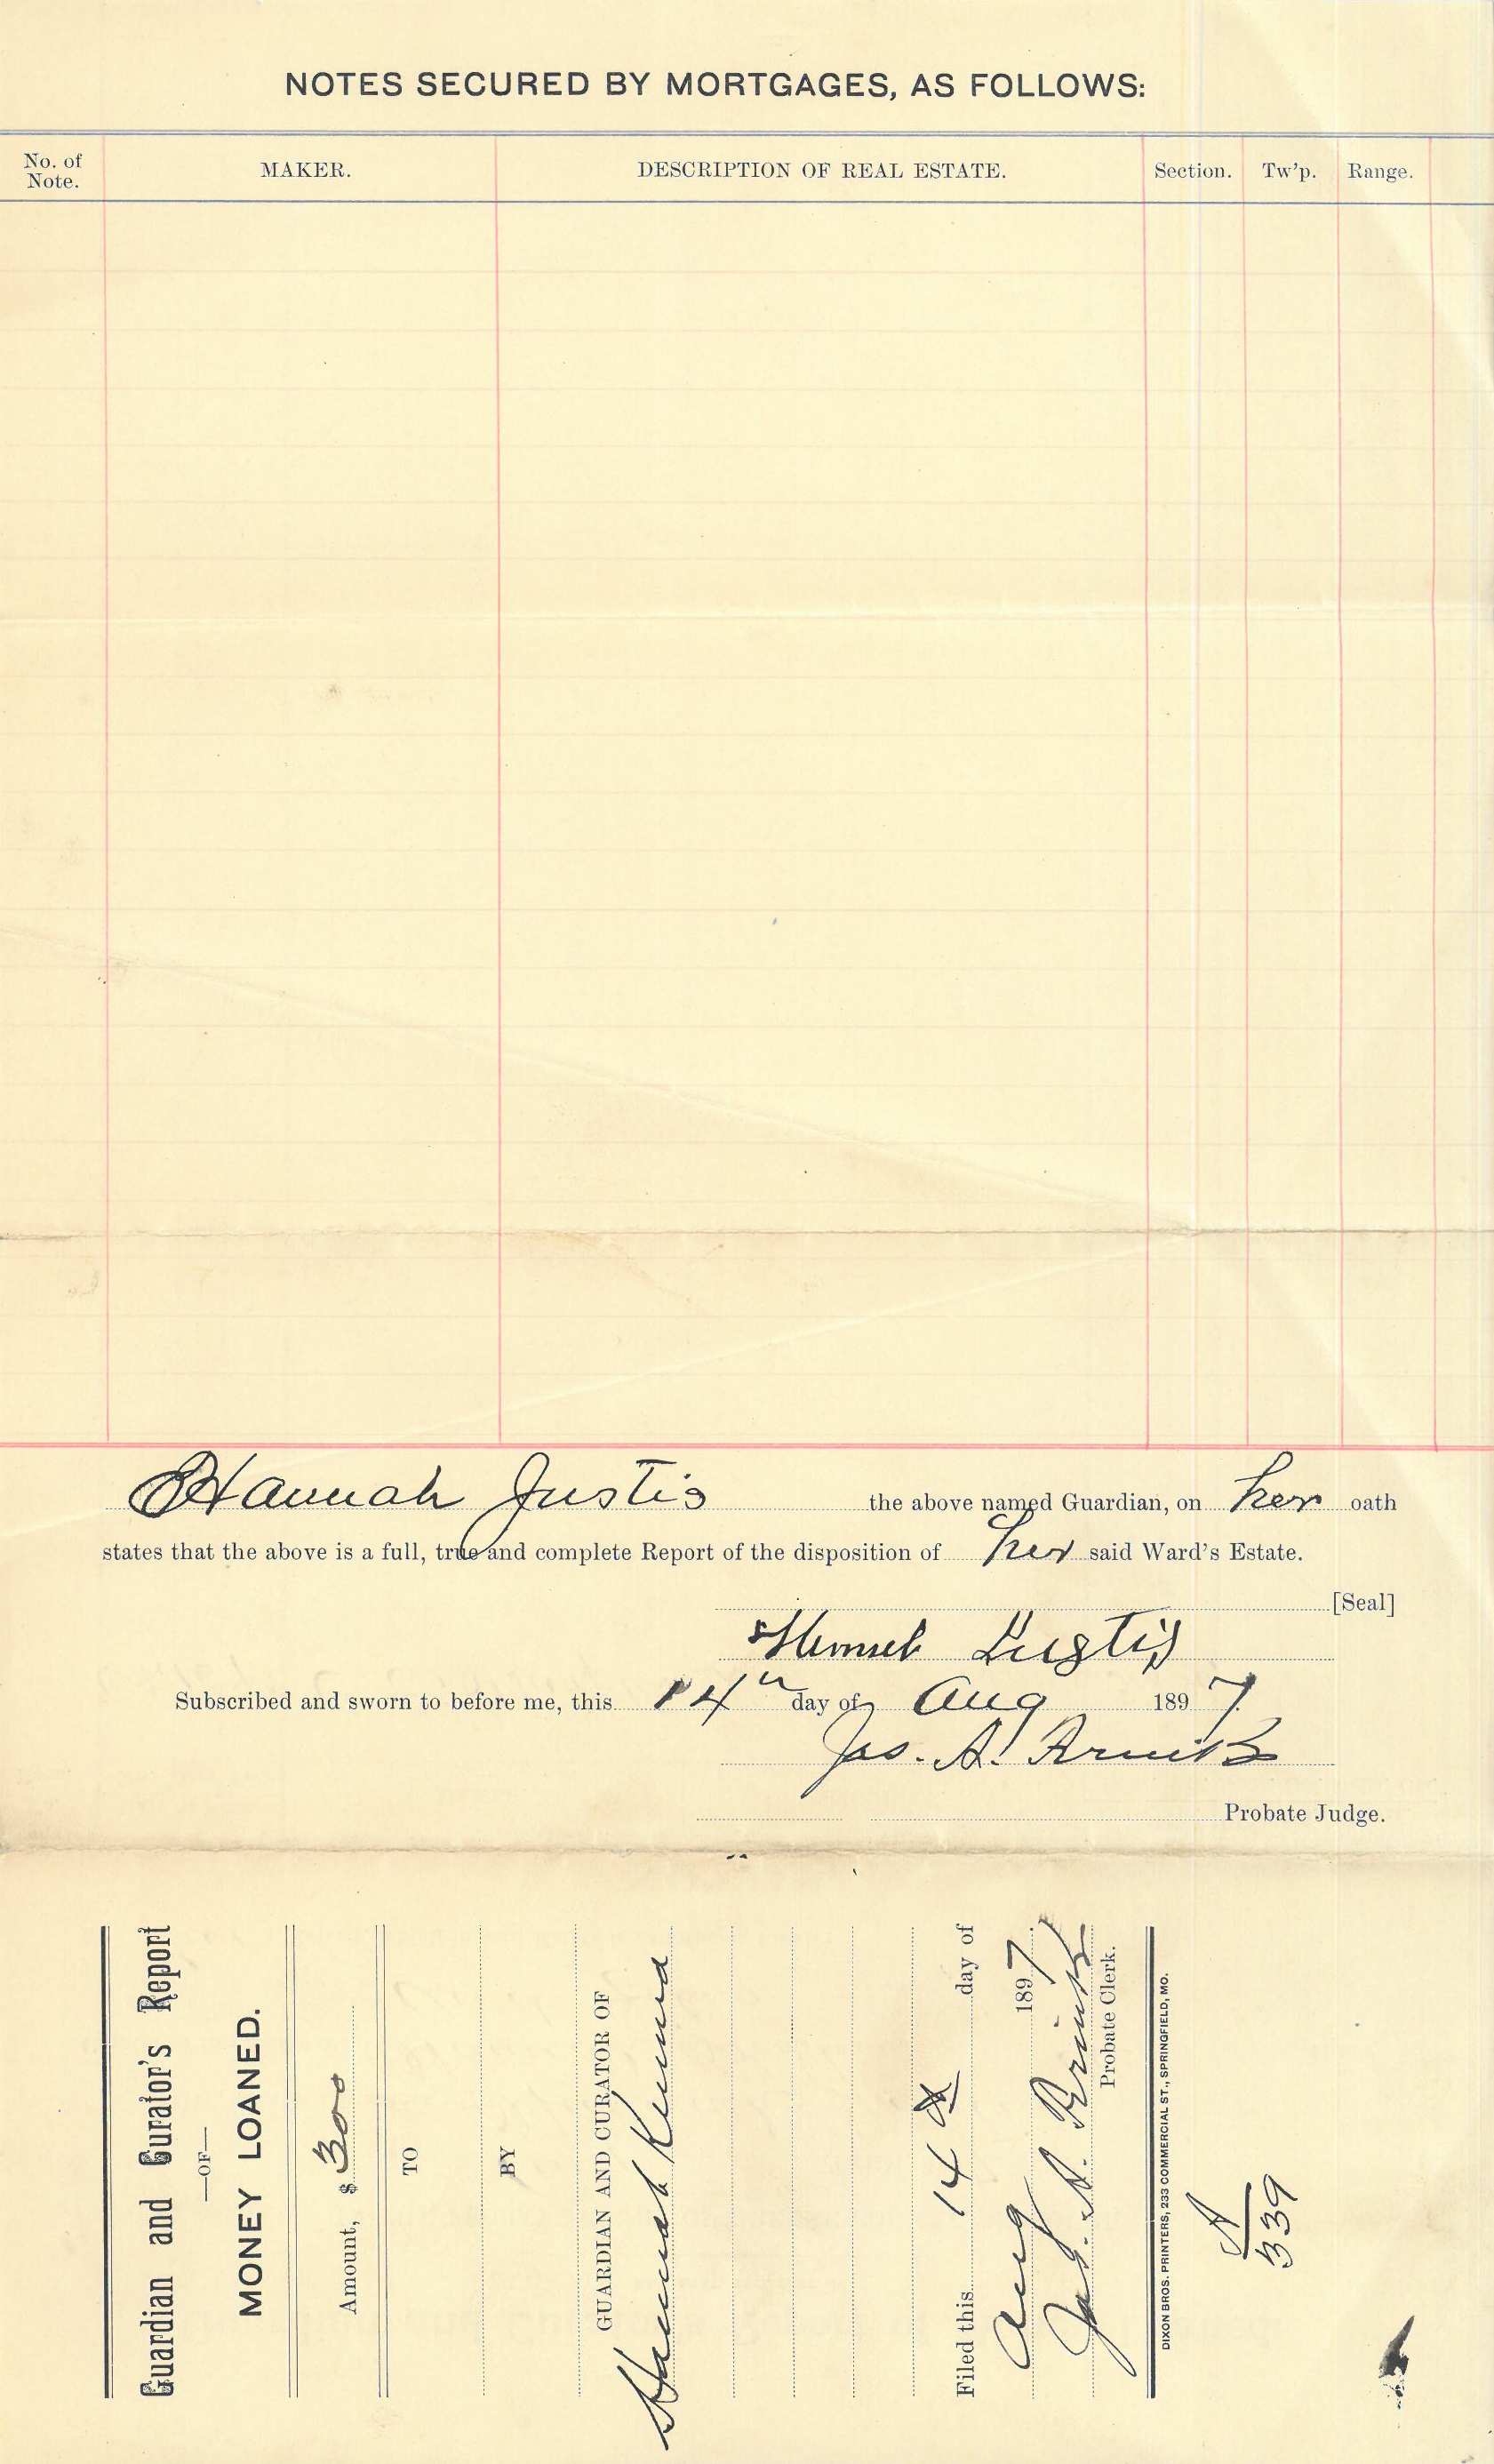 NOTES SECURED BY MORTGAGES, AS FOLLOWS:
No. of Note. MAKER. DESCRIPTION OF REAL ESTATE. Section. Tw'p. Range.
Hannah Justis the above named Guardian, on her oath
states that the above is a full, true and complete Report of the disposition of her said Ward's Estate.
[Seal]
Justis
Subscribed and sworn to before me, this 14th day of Aug 1897
Jas. A.
Probate Judge.
Guardian and Curator's Report
—OF—
MONEY LOANED.
Amount, $ 300
TO
BY
GUARDIAN AND CURATOR OF
Hannah
Filed this 14 day of
Aug 1897
Jas. A.
Probate Clerk.
DIXON BROS. PRINTERS, 233 COMMERCIAL ST., SPRINGFIELD, MO.
A
339